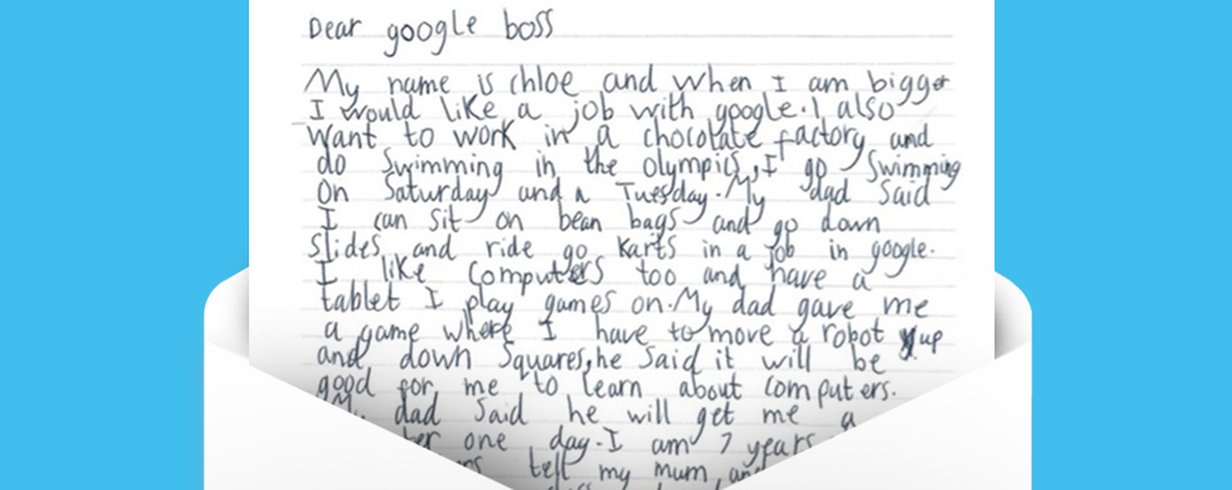 Dear google boss
My name is chloe and when I am bigger
I would like a job with google. I also
want to work in a chocolate factory and
do swimming in the olympics, I go Swimming
on Saturday and a Tuesday. My dad said
I can sit on bean bags and go down
slides and ride go karts in a job in google.
I like computers too and have a
tablet I play games on. My dad gave me
a game where I have to move a robot up
and down squares, he said it will be
good for me to learn about computers.
My dad said he will get me a
one day. I am 7 years
tell my mum, and